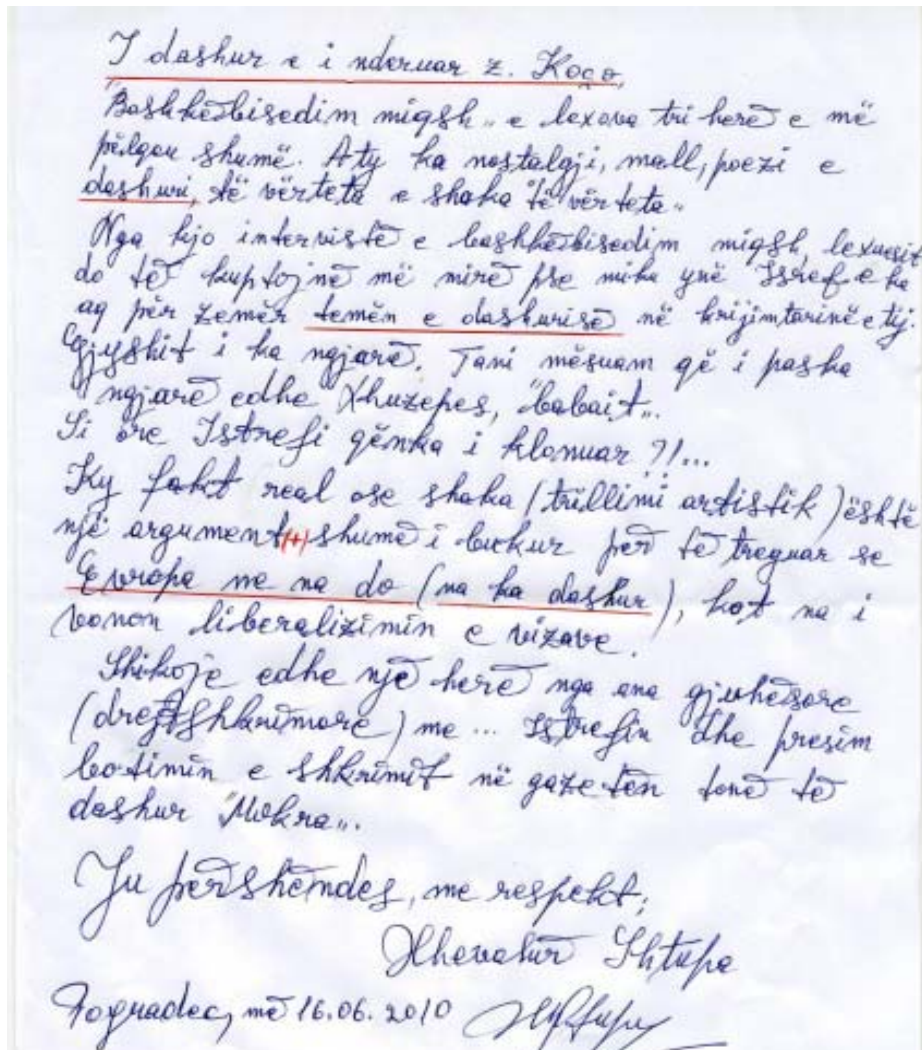 I dashur e i nderuar z. Koço,
"Bashkëbisedim miqsh„ e lexova tri herë e më
pëlqeu shumë. Aty ka nostalgji, mall, poezi e
dashuri, të vërteta e shaka "të vërteta„
Nga kjo intervistë e bashkëbisedim miqsh, lexuesit
do të kuptojnë më mirë pse miku ynë Istref e ka
aq për zemër temën e dashurisë në krijimtarinë e tij.
Gjyshit i ka ngjarë. Tani mësuam që i paska
ngjarë edhe Xhuzepes, "babait„.
Si ore Istrefi qënka i klonuar ?!...
Ky fakt real ose shaka (trillimi artistik) është
një argument (+) shumë i bukur për të treguar se
Evropa ne na do (na ka dashur), kot na i
vonon liberalizimin e vizave.
Shikoje edhe një herë nga ana gjuhësore
(drejtshkrimore) me ... Istrefin dhe presim
botimin e shkrimit në gazetën tonë të
dashur "Mokra„.
Ju përshëndes, me respekt,
Xhevahir Shtupa
Pogradec, më 16.06.2010